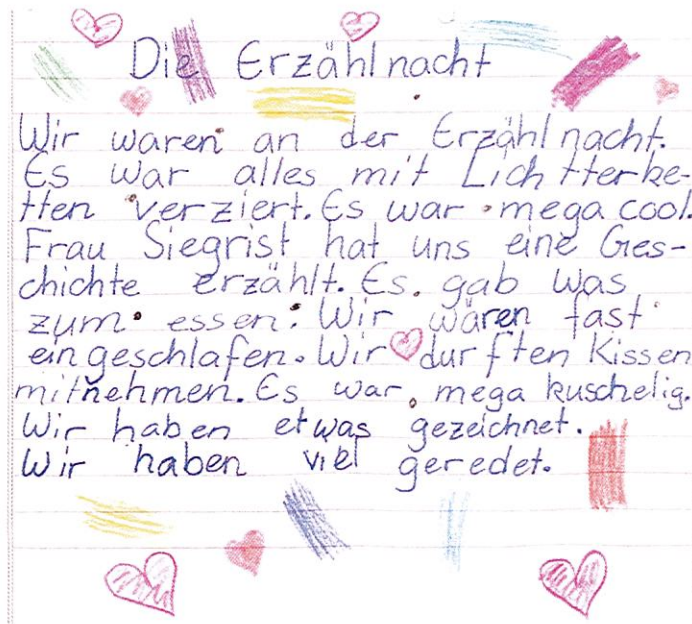 Die Erzählnacht
Wir waren an der Erzählnacht.
Es war alles mit Lichtterke-
tten verziert. Es war mega cool.
Frau Siegrist hat uns eine Ges-
chichte erzählt. Es gab was
zum essen. Wir wären fast
eingeschlafen. Wir durften Kissen
mitnehmen. Es war mega kuschelig.
Wir haben etwas gezeichnet.
Wir haben viel geredet.